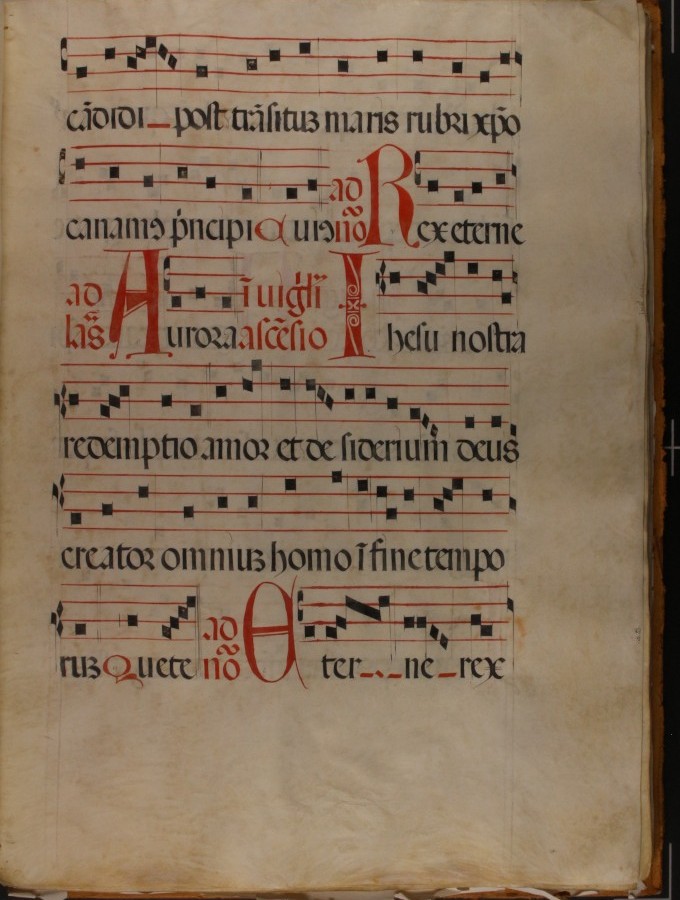 cãdidi post trãsituʒ maris rubri xp̃o
canamꝰ p̃ncipi Quiꝰ ad nõ Rex eterne
ad laũs Aurora ĩ uigł'i ascẽsio Ihesu nostra
redemptio amor et desiderium̃ deus
creator omniuʒ homo ĩ fine tempo
ruʒ Quete ad nõ Eter ne rex